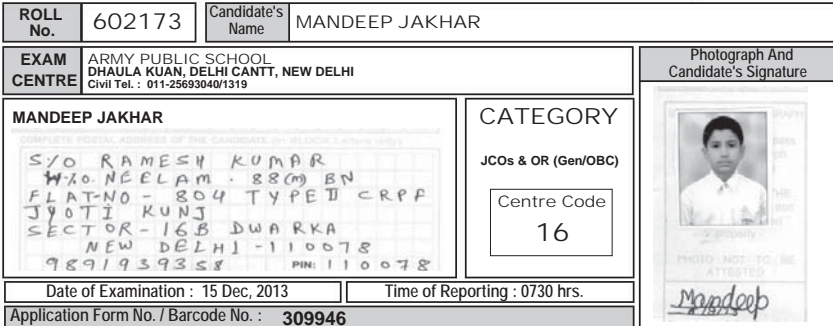 ROLL No. 602173 Candidate's Name MANDEEP JAKHAR
EXAM CENTRE
ARMY PUBLIC SCHOOL
DHAULA KUAN, DELHI CANTT, NEW DELHI
Civil Tel. : 011-25693040/1319
Photograph And
Candidate's Signature
MANDEEP JAKHAR
COMPLETE POSTAL ADDRESS OF THE CANDIDATE (in BLOCK Letters only)
S/O RAMESH KUMAR
W/O. NEELAM . 88(m) BN
FLAT-NO - 804 TYPE II CRPF
JYOTI KUNJ
SECTOR-16B DWARKA
NEW DELHI-110078
9891939358 PIN: 110078
CATEGORY
JCOs & OR (Gen/OBC)
Centre Code
16
PHOTO NOT TO BE
ATTESTED
Mandeep
Date of Examination : 15 Dec, 2013
Time of Reporting : 0730 hrs.
Application Form No. / Barcode No. : 309946